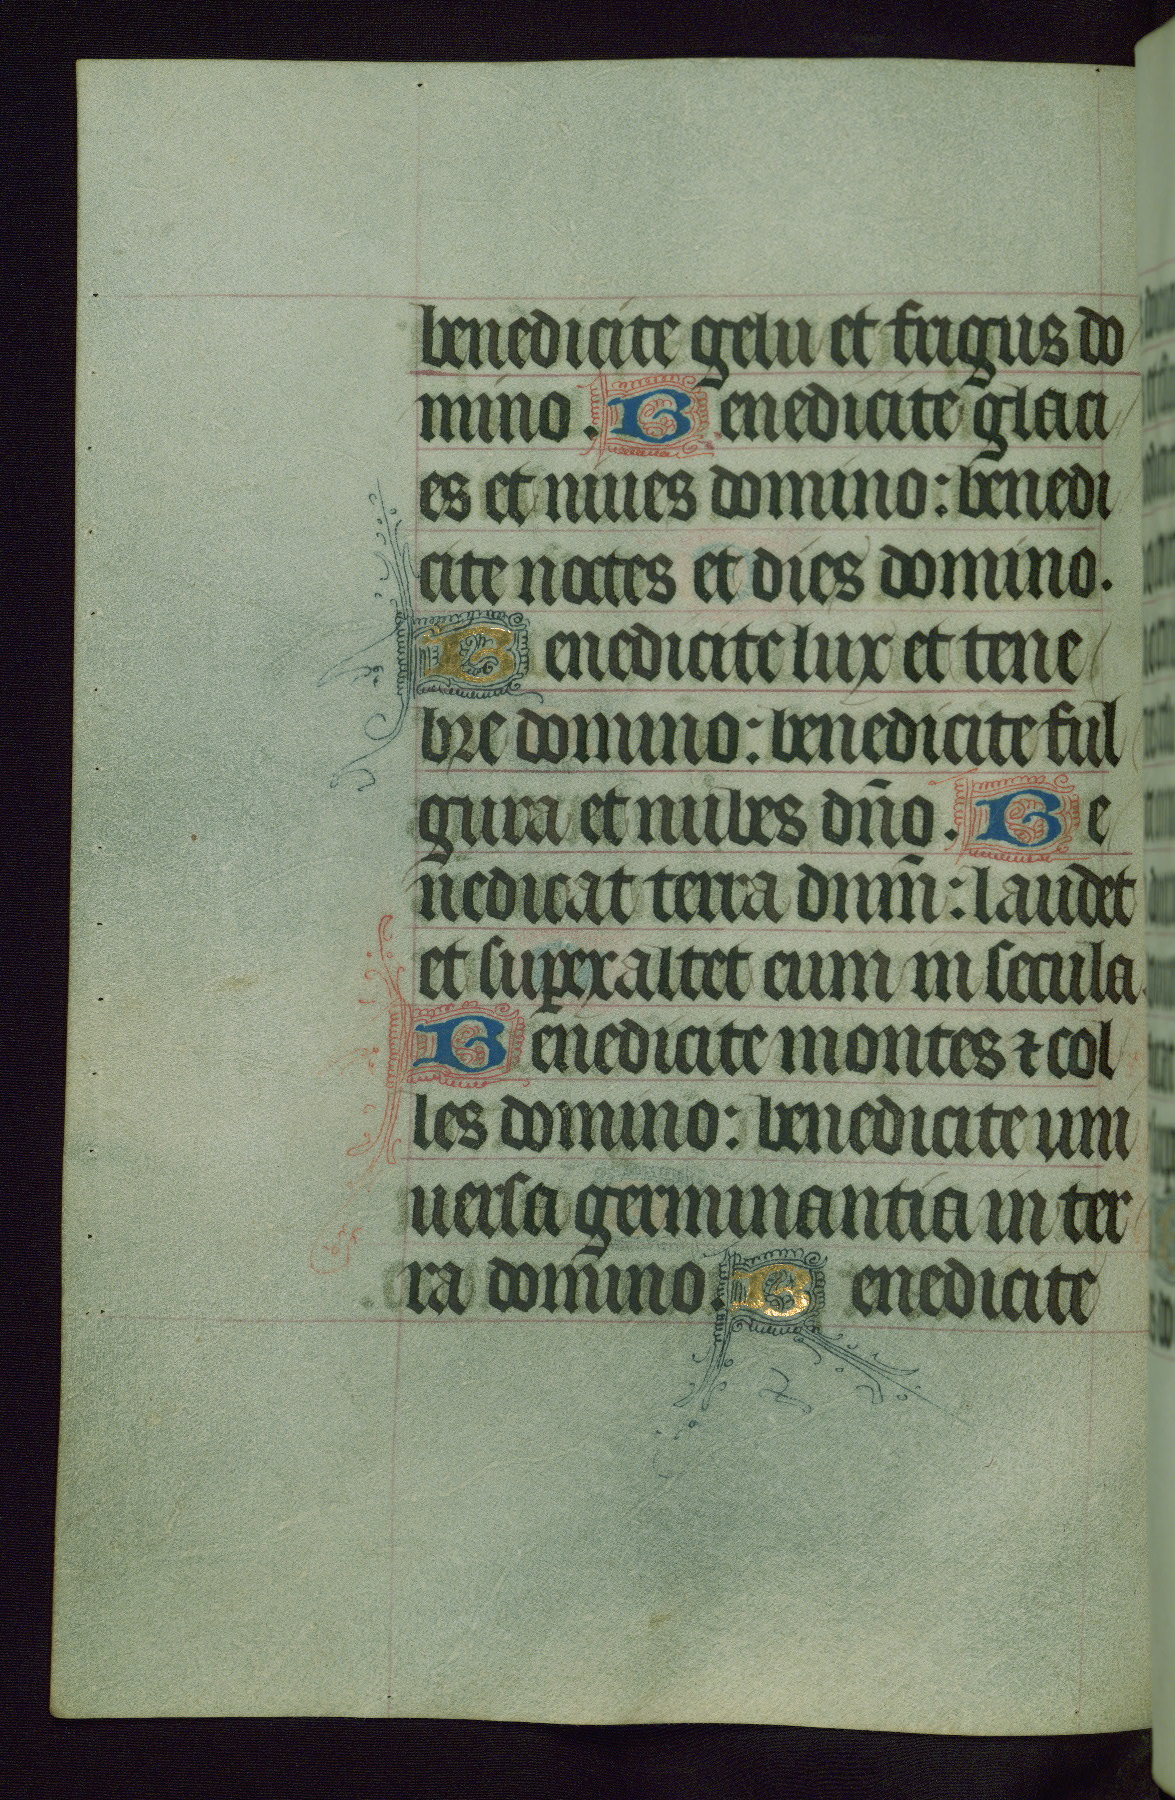 benedicite gelu et frigus do
mino. Benedicite glaci
es et niues domino: benedi
cite noctes et dies domino.
Benedicite lux et tene
bre domino: benedicite ful
gura et nubes dño. Be
nedicat terra dnm̄: laudet
et suꝑexaltet eum in secula
Benedicite montes ⁊ col
les domino: benedicite uni
uersa germinantia in ter
ra domino. Benedicite